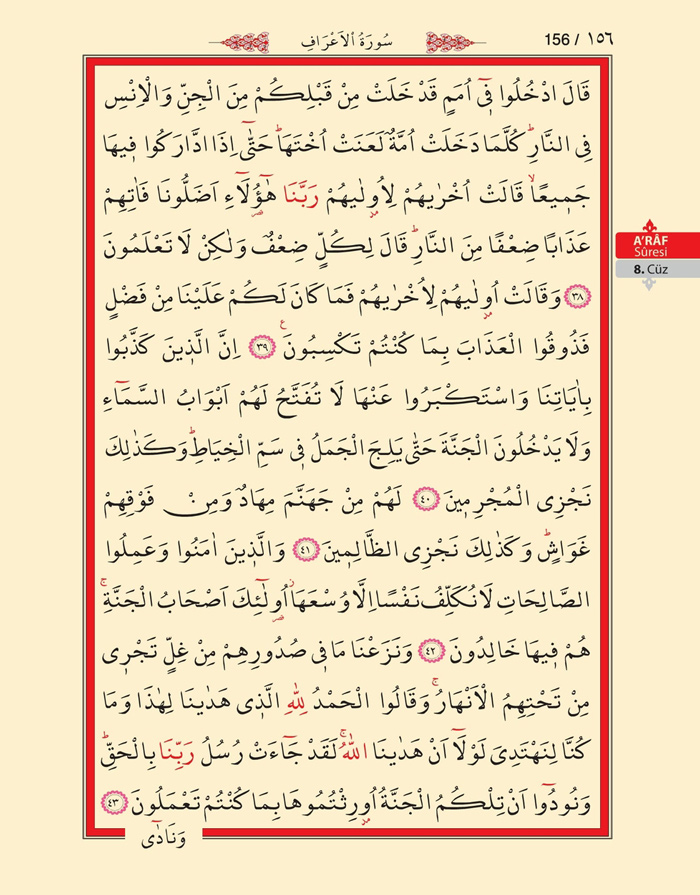 156 / ١٥٦
سُورَةُ الْاَعْرَافِ
قَالَ ادْخُلُوا ف۪ٓي اُمَمٍ قَدْ خَلَتْ مِنْ قَبْلِكُمْ مِنَ الْجِنِّ وَالْاِنْسِ
فِي النَّارِۜ كُلَّمَا دَخَلَتْ اُمَّةٌ لَعَنَتْ اُخْتَهَاۜ حَتّٰٓى اِذَا ادَّارَكُوا ف۪يهَا
جَم۪يعًاۙ قَالَتْ اُخْرٰيهُمْ لِاُو۫لٰيهُمْ رَبَّنَا هٰٓؤُ۬لَٓاءِ اَضَلُّونَا فَاٰتِهِمْ
عَذَابًا ضِعْفًا مِنَ النَّارِۜ قَالَ لِكُلٍّ ضِعْفٌ وَلٰكِنْ لَا تَعْلَمُونَ
﴿٣٨﴾ وَقَالَتْ اُو۫لٰيهُمْ لِاُخْرٰيهُمْ فَمَا كَانَ لَكُمْ عَلَيْنَا مِنْ فَضْلٍ
فَذُوقُوا الْعَذَابَ بِمَا كُنْتُمْ تَكْسِبُونَ ﴿٣٩﴾ ع اِنَّ الَّذ۪ينَ كَذَّبُوا
بِاٰيَاتِنَا وَاسْتَكْبَرُوا عَنْهَا لَا تُفَتَّحُ لَهُمْ اَبْوَابُ السَّمَٓاءِ
وَلَا يَدْخُلُونَ الْجَنَّةَ حَتّٰى يَلِجَ الْجَمَلُ ف۪ي سَمِّ الْخِيَاطِۜ وَكَذٰلِكَ
نَجْزِي الْمُجْرِم۪ينَ ﴿٤٠﴾ لَهُمْ مِنْ جَهَنَّمَ مِهَادٌ وَمِنْ فَوْقِهِمْ
غَوَاشٍۜ وَكَذٰلِكَ نَجْزِي الظَّالِم۪ينَ ﴿٤١﴾ وَالَّذ۪ينَ اٰمَنُوا وَعَمِلُوا
الصَّالِحَاتِ لَا نُكَلِّفُ نَفْسًا اِلَّا وُسْعَهَاۘ اُو۬لٰٓئِكَ اَصْحَابُ الْجَنَّةِۚ
هُمْ ف۪يهَا خَالِدُونَ ﴿٤٢﴾ وَنَزَعْنَا مَا ف۪ي صُدُورِهِمْ مِنْ غِلٍّ تَجْر۪ي
مِنْ تَحْتِهِمُ الْاَنْهَارُۚ وَقَالُوا الْحَمْدُ لِلّٰهِ الَّذ۪ي هَدٰينَا لِهٰذَا وَمَا
كُنَّا لِنَهْتَدِيَ لَوْلَٓا اَنْ هَدٰينَا اللّٰهُۚ لَقَدْ جَٓاءَتْ رُسُلُ رَبِّنَا بِالْحَقِّۜ
وَنُودُٓوا اَنْ تِلْكُمُ الْجَنَّةُ اُو۫رِثْتُمُوهَا بِمَا كُنْتُمْ تَعْمَلُونَ ﴿٤٣﴾
وَنَادٰٓى
A'RÂF
Sûresi
8. Cüz